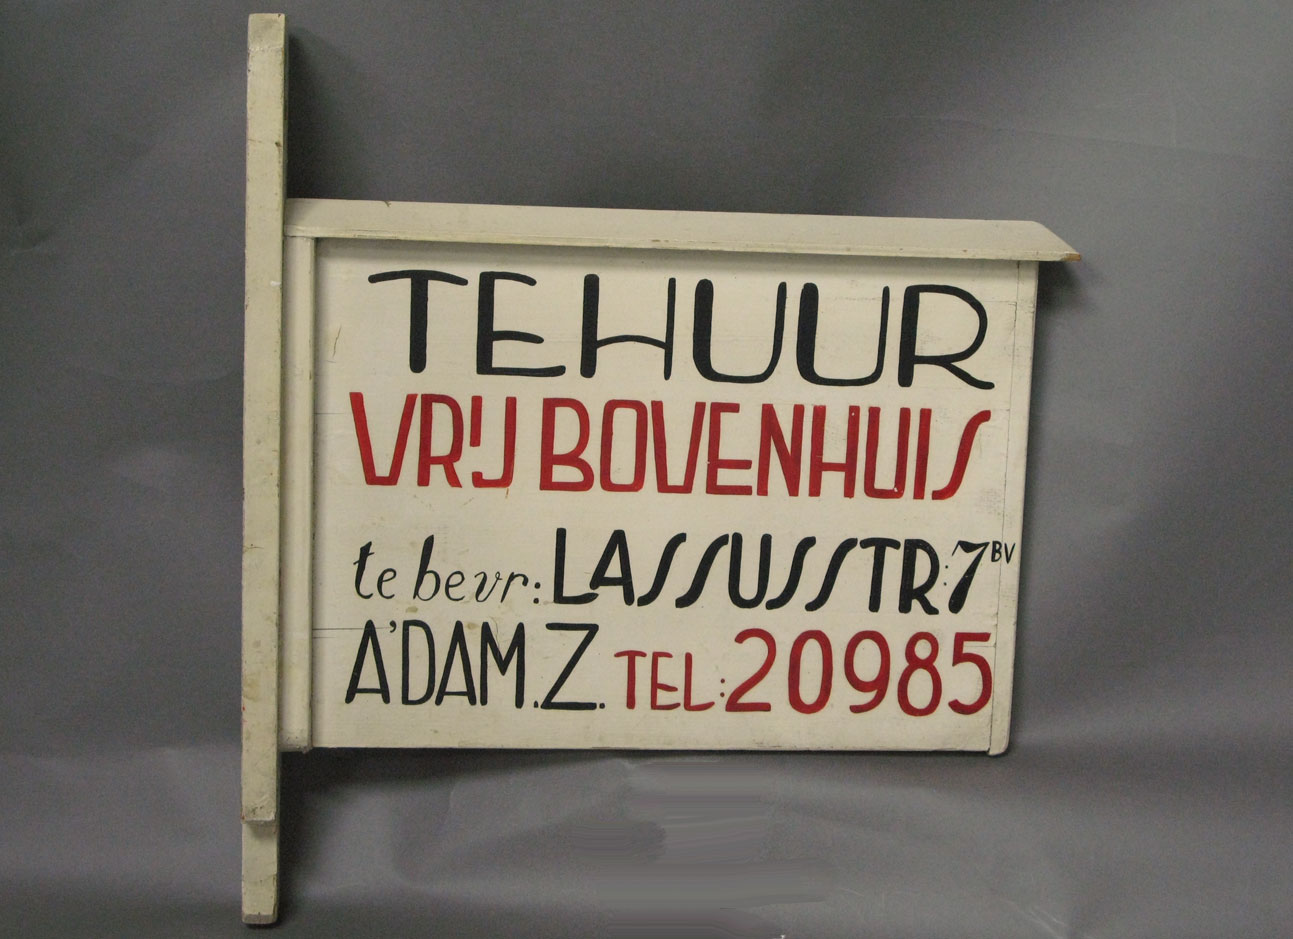 TE HUUR
VRIJ BOVENHUIS
te bevr: LASSUSSTR: 7 BV
A'DAM.Z. TEL: 20985